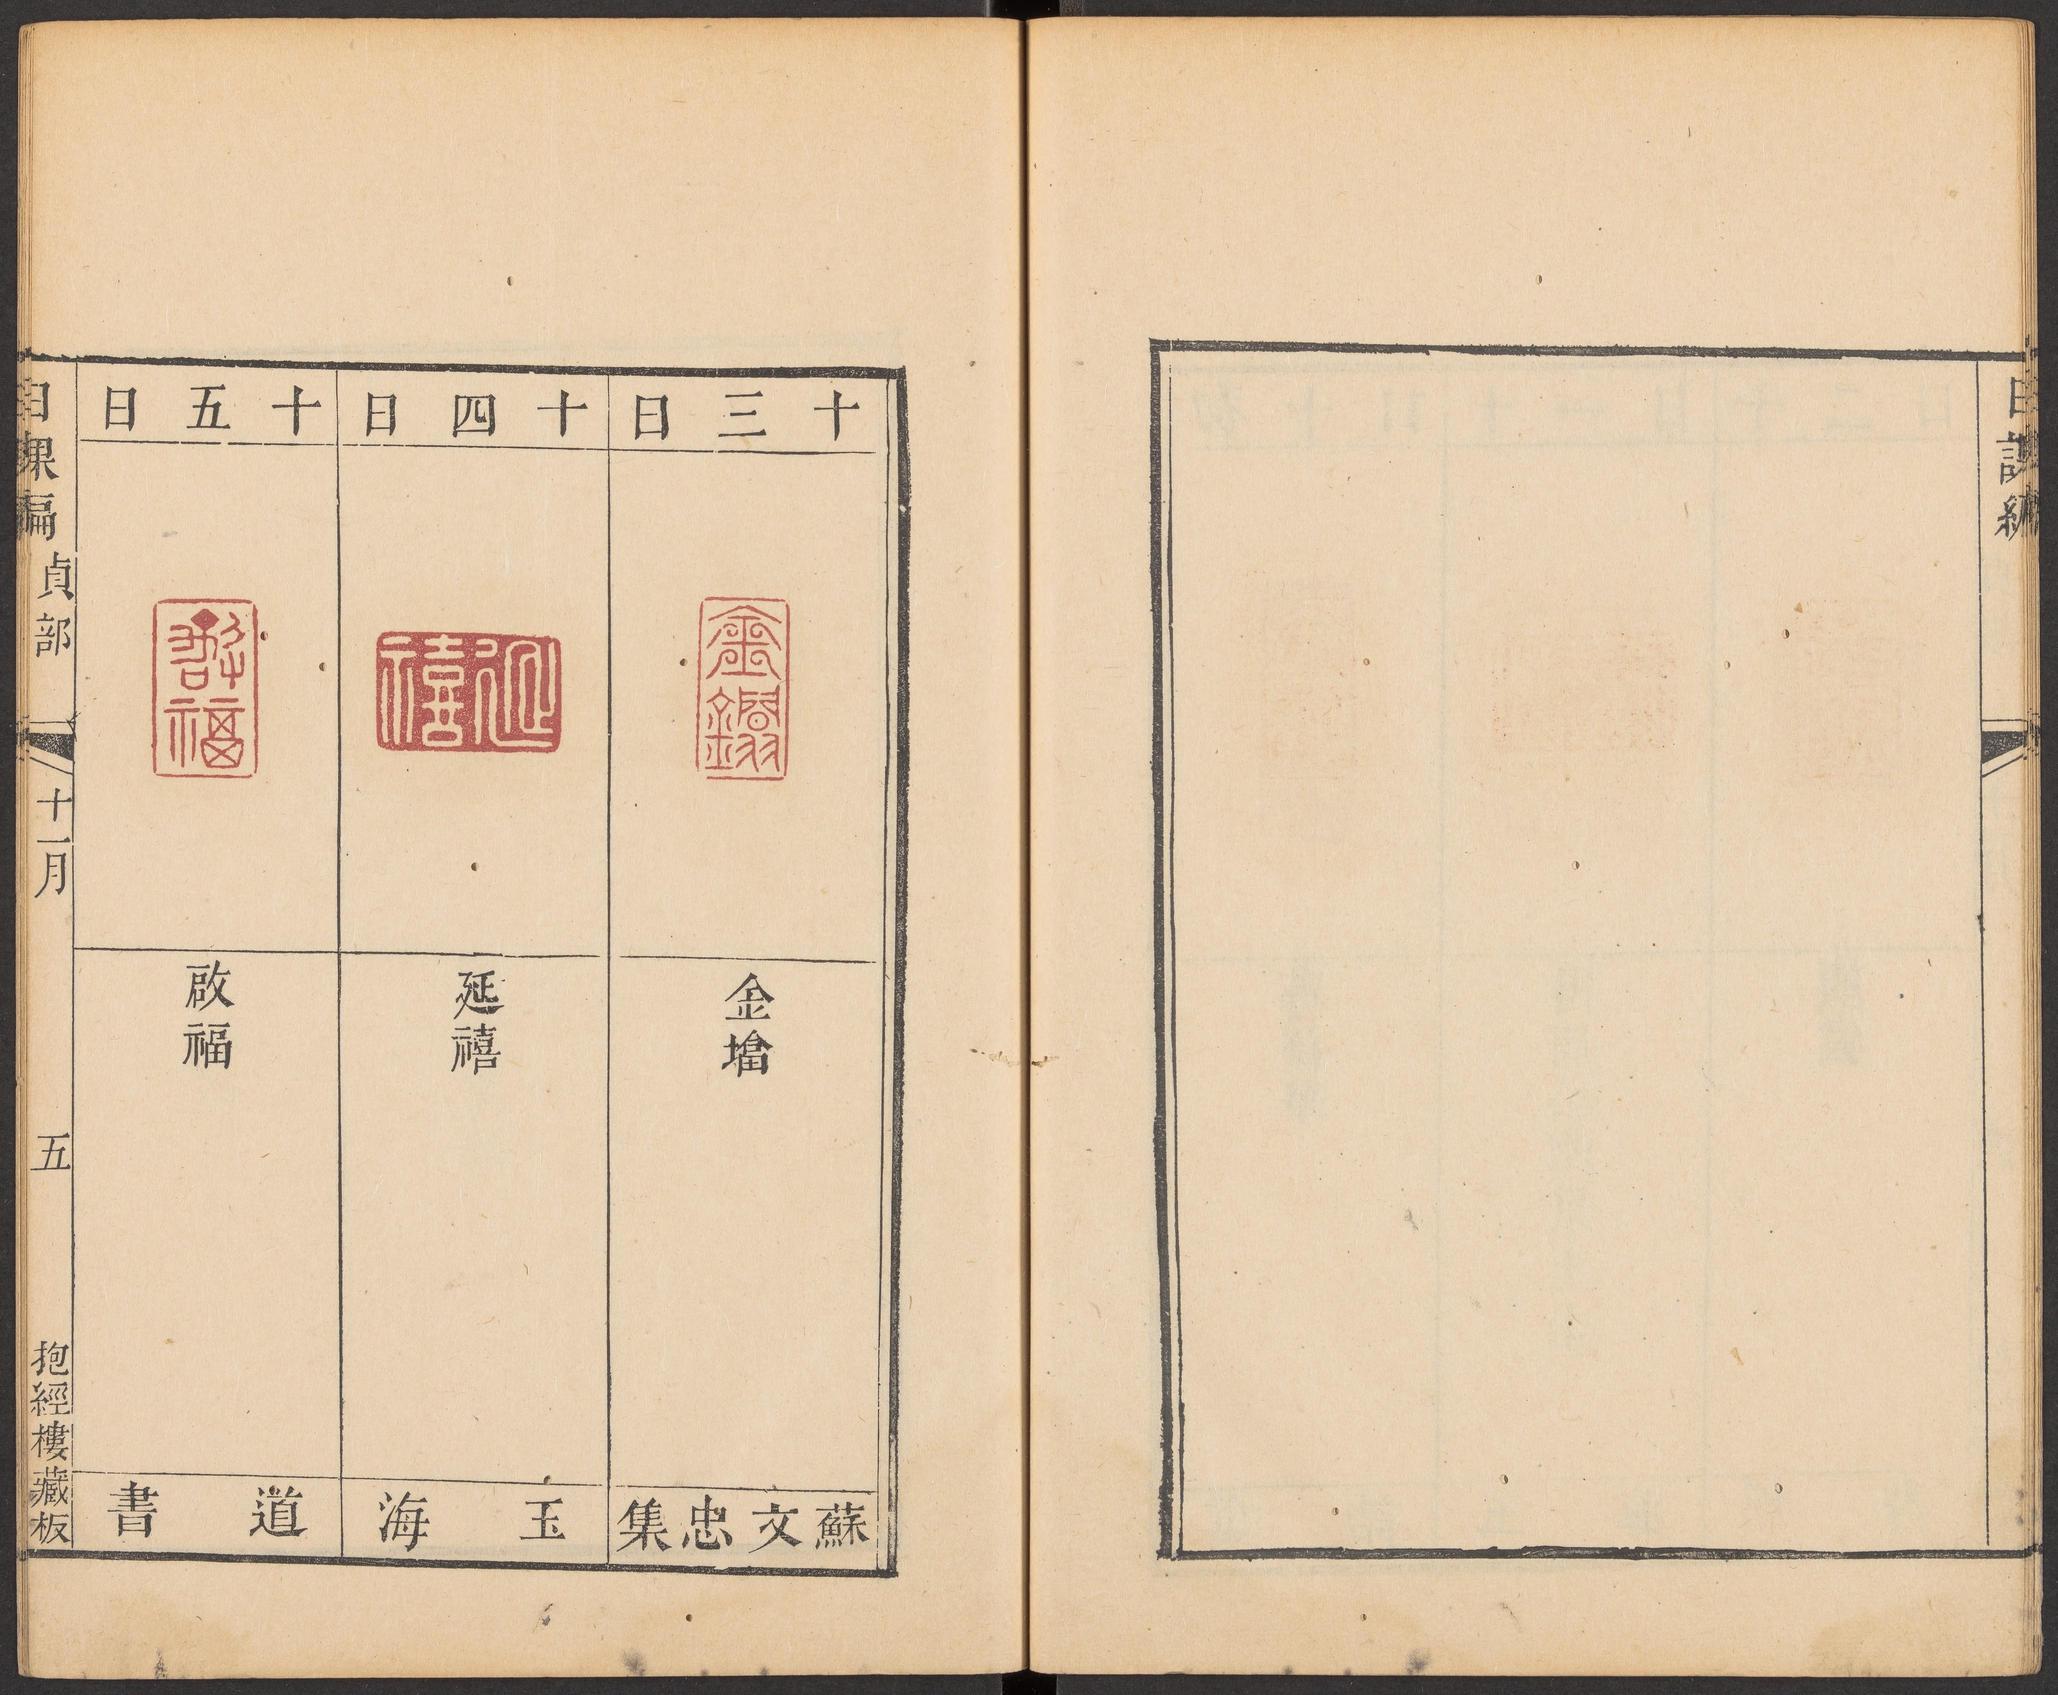 日課編
十三日
金璫
蘇文忠集
十四日
延禧
延禧
玉海
十五日
啟福
啟福
道書
日課編 貞部 十一月 五 抱經樓藏板